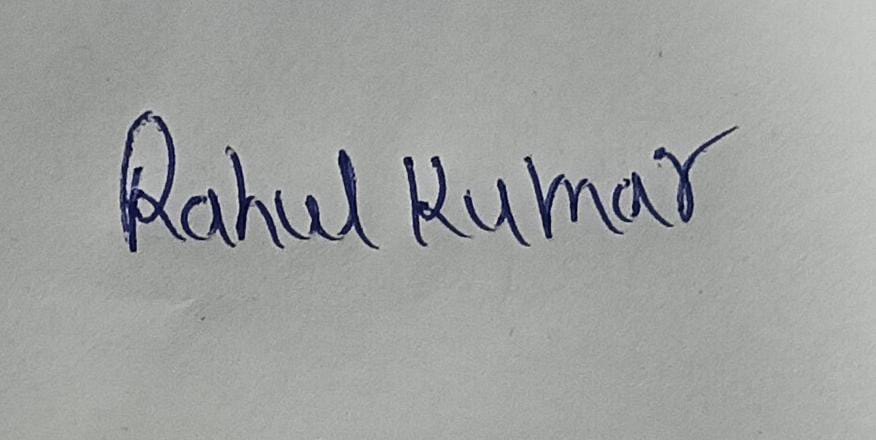 Rahul Kumar